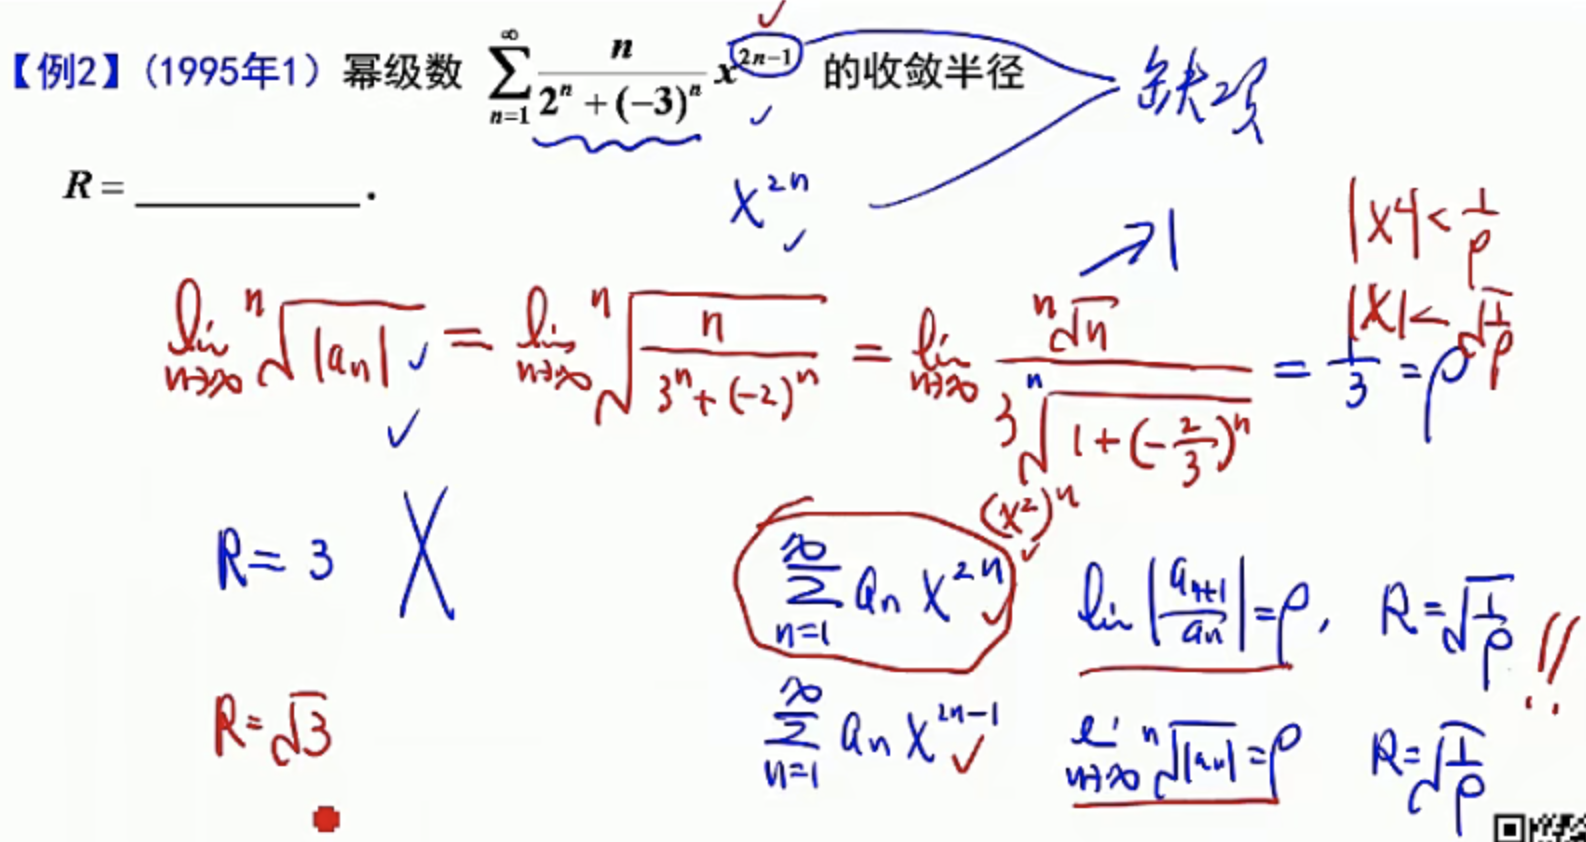 【例2】(1995年1) 幂级数 \sum_{n=1}^{\infty} \frac{n}{2^n+(-3)^n} x^{2n-1} 的收敛半径 缺项
R = ________ .
x^{2n}
→1
|x^2| < \frac{1}{ρ}
|x| < \sqrt{\frac{1}{ρ}}
\lim_{n→∞} \sqrt[n]{|a_n|} = \lim_{n→∞} \sqrt[n]{\frac{n}{3^n+(-2)^n}} = \lim_{n→∞} \frac{\sqrt[n]{n}}{3\sqrt[n]{1+(-\frac{2}{3})^n}} = \frac{1}{3} = ρ
R = 3 ×
(x^2)^n
\sum_{n=1}^{∞} a_n x^{2n} lim |\frac{a_{n+1}}{a_n}| = ρ, R = \sqrt{\frac{1}{ρ}} !!
R = \sqrt{3}
\sum_{n=1}^{∞} a_n x^{2n-1} \lim_{n→∞} \sqrt[n]{|a_n|} = ρ R = \sqrt{\frac{1}{ρ}}